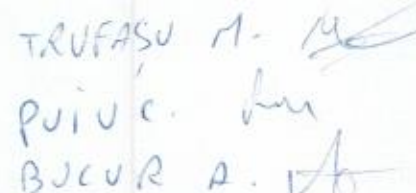 TRUFAȘU M.
PUIU C.
BUCUR A.